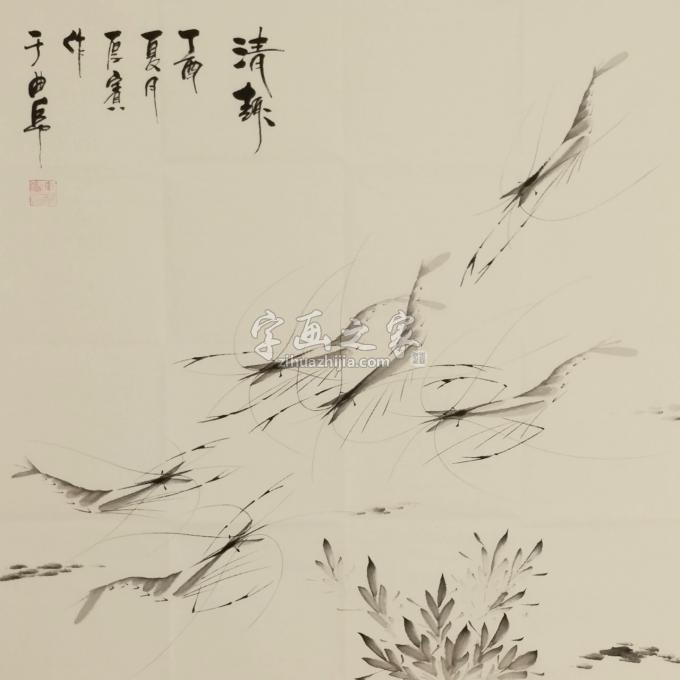 清趣
丁酉
夏月
厚宾
作
于曲阜
字画之家
zihuazhijia.com